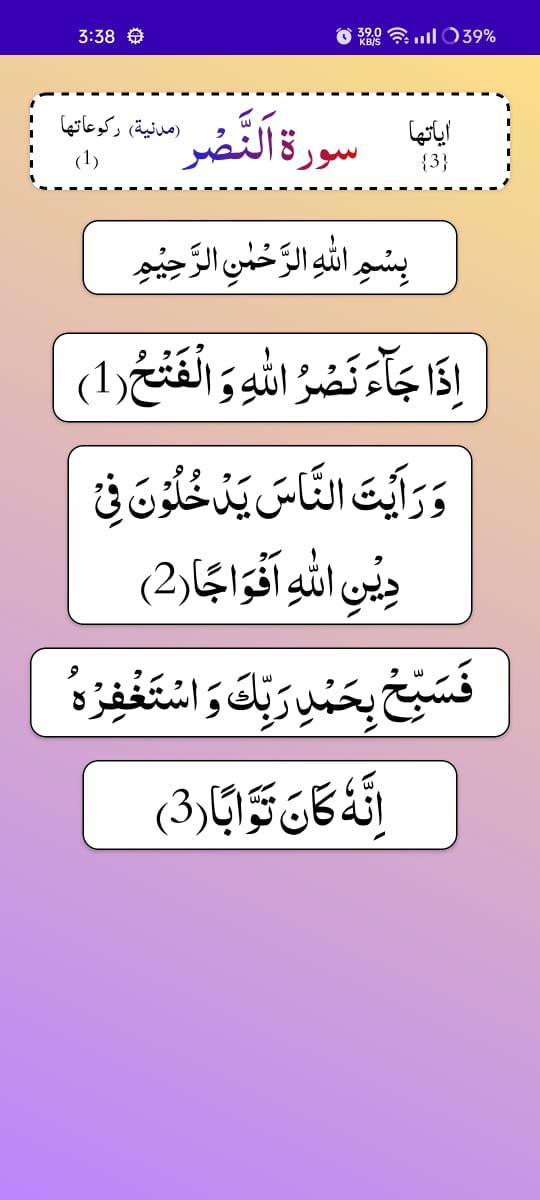 3:38 39.0 KB/S 39%
اٰیاتها سورة اَلنَّصْر (مدنية) ركوعاتها
{3} (1)
بِسْمِ اللّٰهِ الرَّحْمٰنِ الرَّحِیْمِ
اِذَا جَآءَ نَصْرُ اللّٰهِ وَ الْفَتْحُ(1)
وَ رَاَیْتَ النَّاسَ یَدْخُلُوْنَ فِیْ
دِیْنِ اللّٰهِ اَفْوَاجًا(2)
فَسَبِّحْ بِحَمْدِ رَبِّكَ وَ اسْتَغْفِرْهُ
اِنَّهٗ كَانَ تَوَّابًا(3)